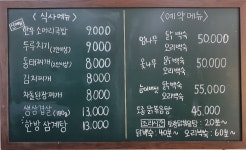 <식사메뉴>
한우소머리국밥 9,000
두루치기 (2인이상) 9,000
동태찌개 (2인이상) 8,000
김치찌개 8,000
차돌된장찌개 8,000
생삼겹살 13,000
한방 삼계탕 13,000
<예약메뉴>
옻나무 닭백숙 오리백숙 50,000
닭백숙 오리백숙 50,000
능이버섯 닭백숙 오리백숙 55,000
토종 닭볶음탕 45,000
조리시간 20분~
닭백숙 : 40분~ 오리백숙 : 60분~